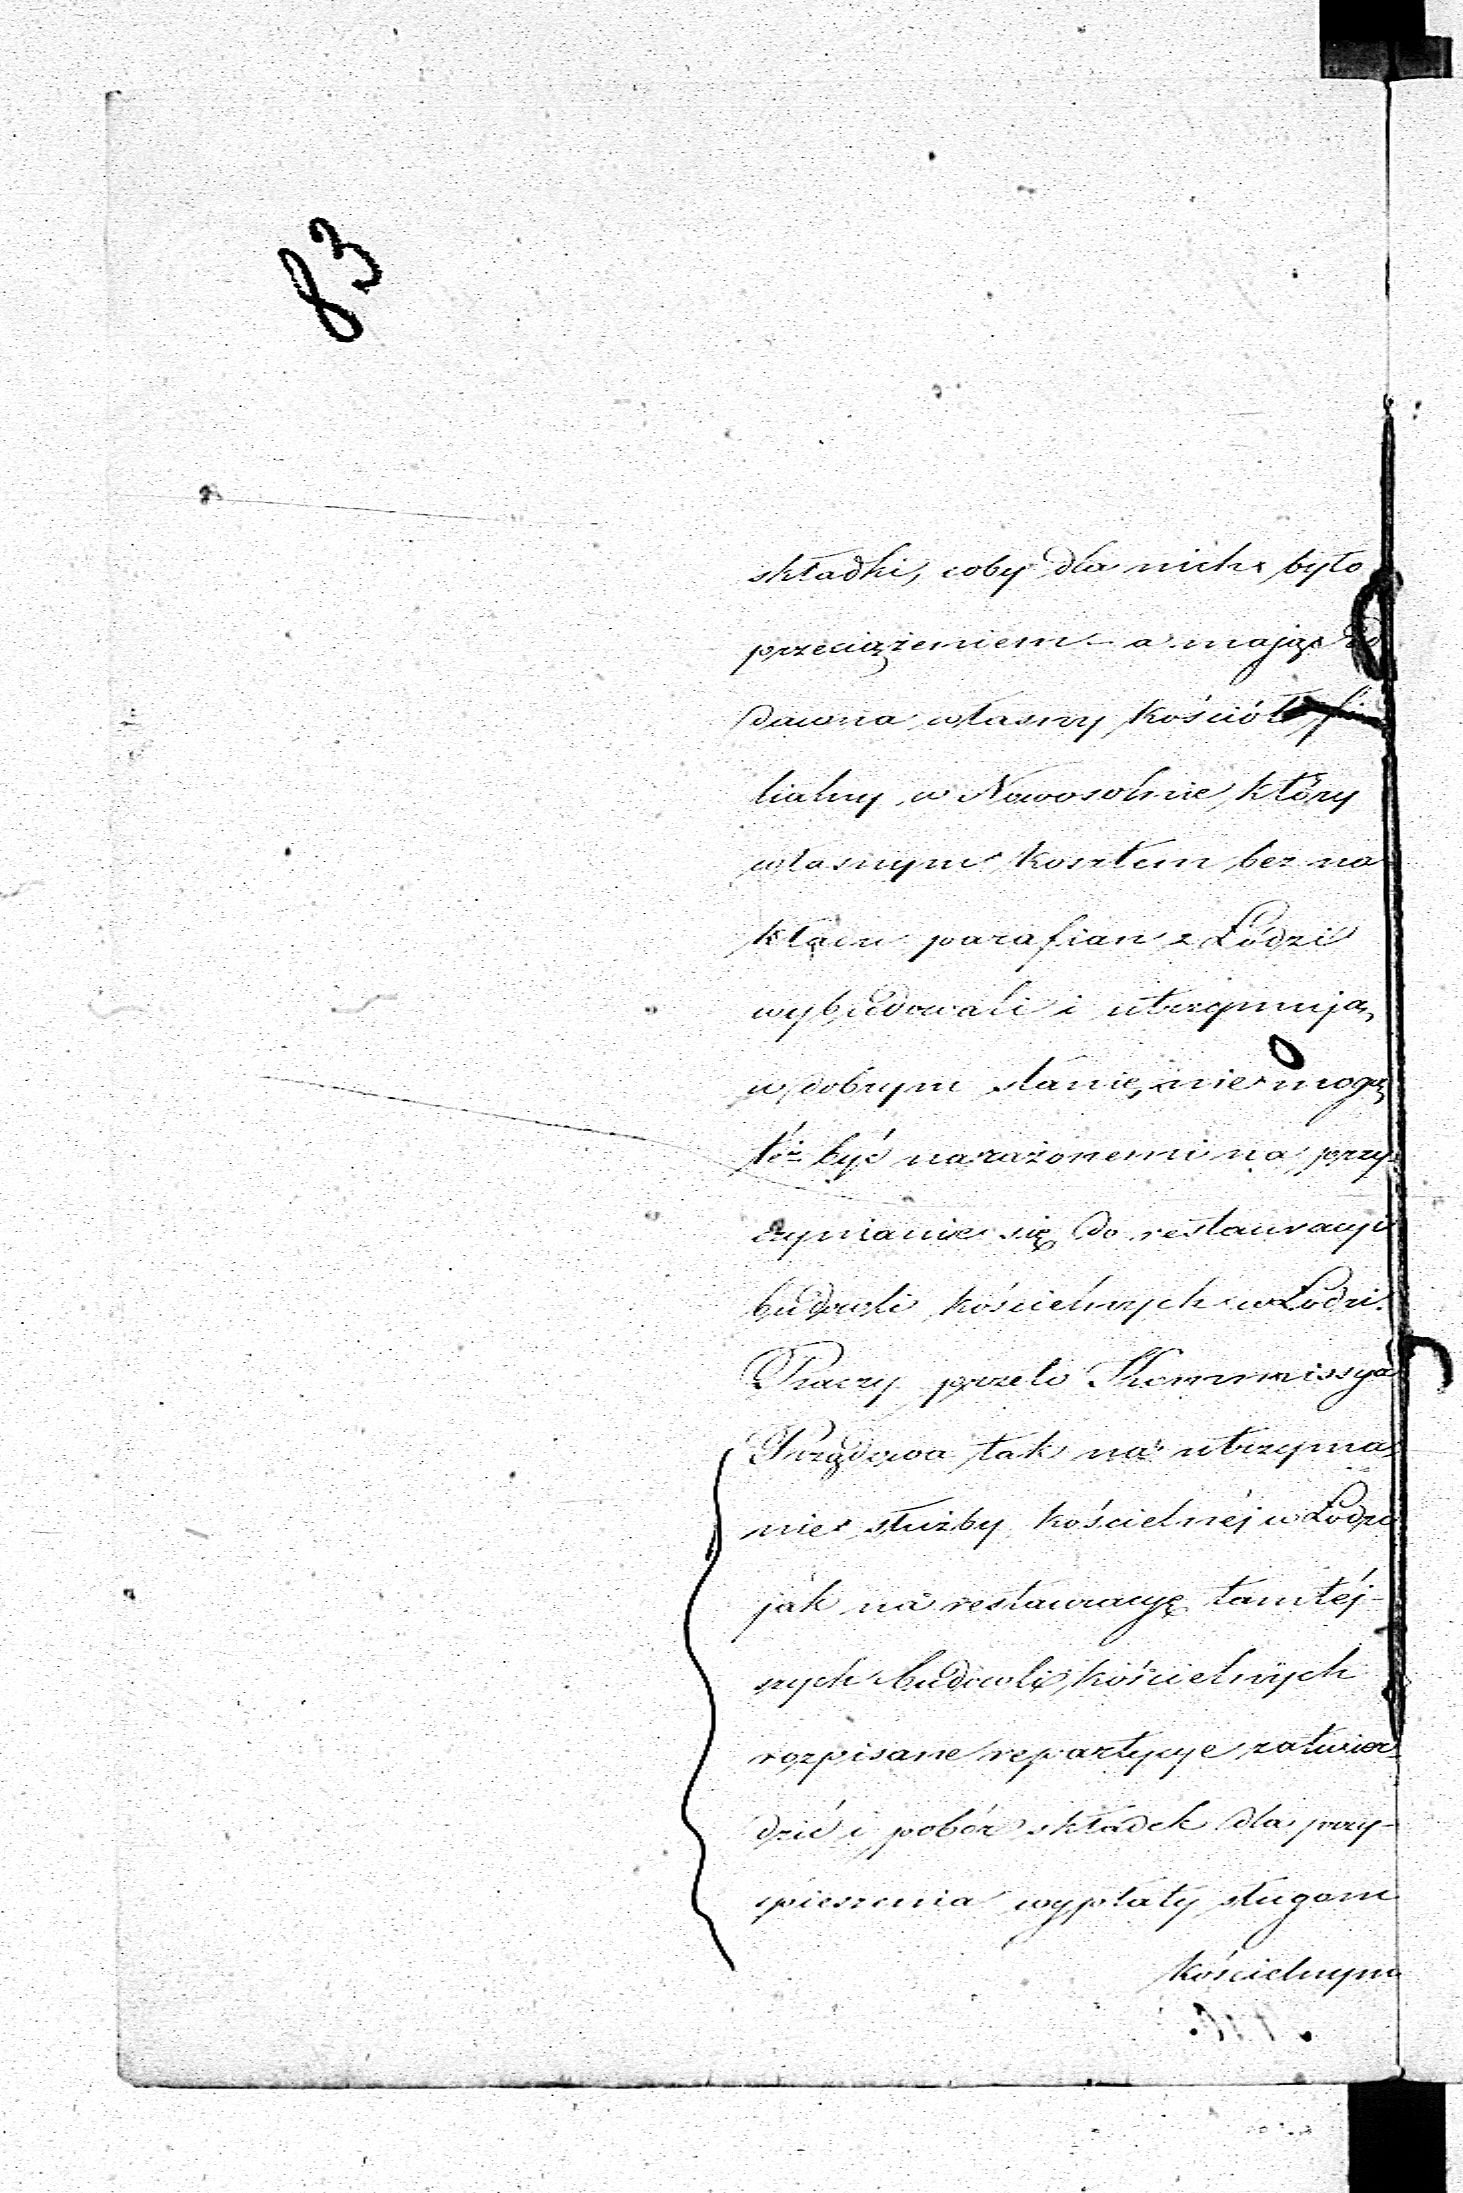 83
składki, coby dla nich było
przeciążeniem – a mając od
dawna własny kościół fi
lialny w Nowosolnie, który
własnym kosztem bez na
kładu parafian z Łodzi
wybudowali i utrzymują,
w dobrym stanie, nie mogą
téż być narażonemi na przy
czynianie się do restauracyi
budowli kościelnych w Łodzi.
Raczy przeto Kommissya
Rządowa tak na utrzyma
nie służby kościelnéj w Łodzi
jak na restauracyę tamtéj-
szych budowli kościelnych
rozpisane repartycye zatwier
dzić i pobór składek dla przy-
spieszenia wypłaty sługom
kościelnym